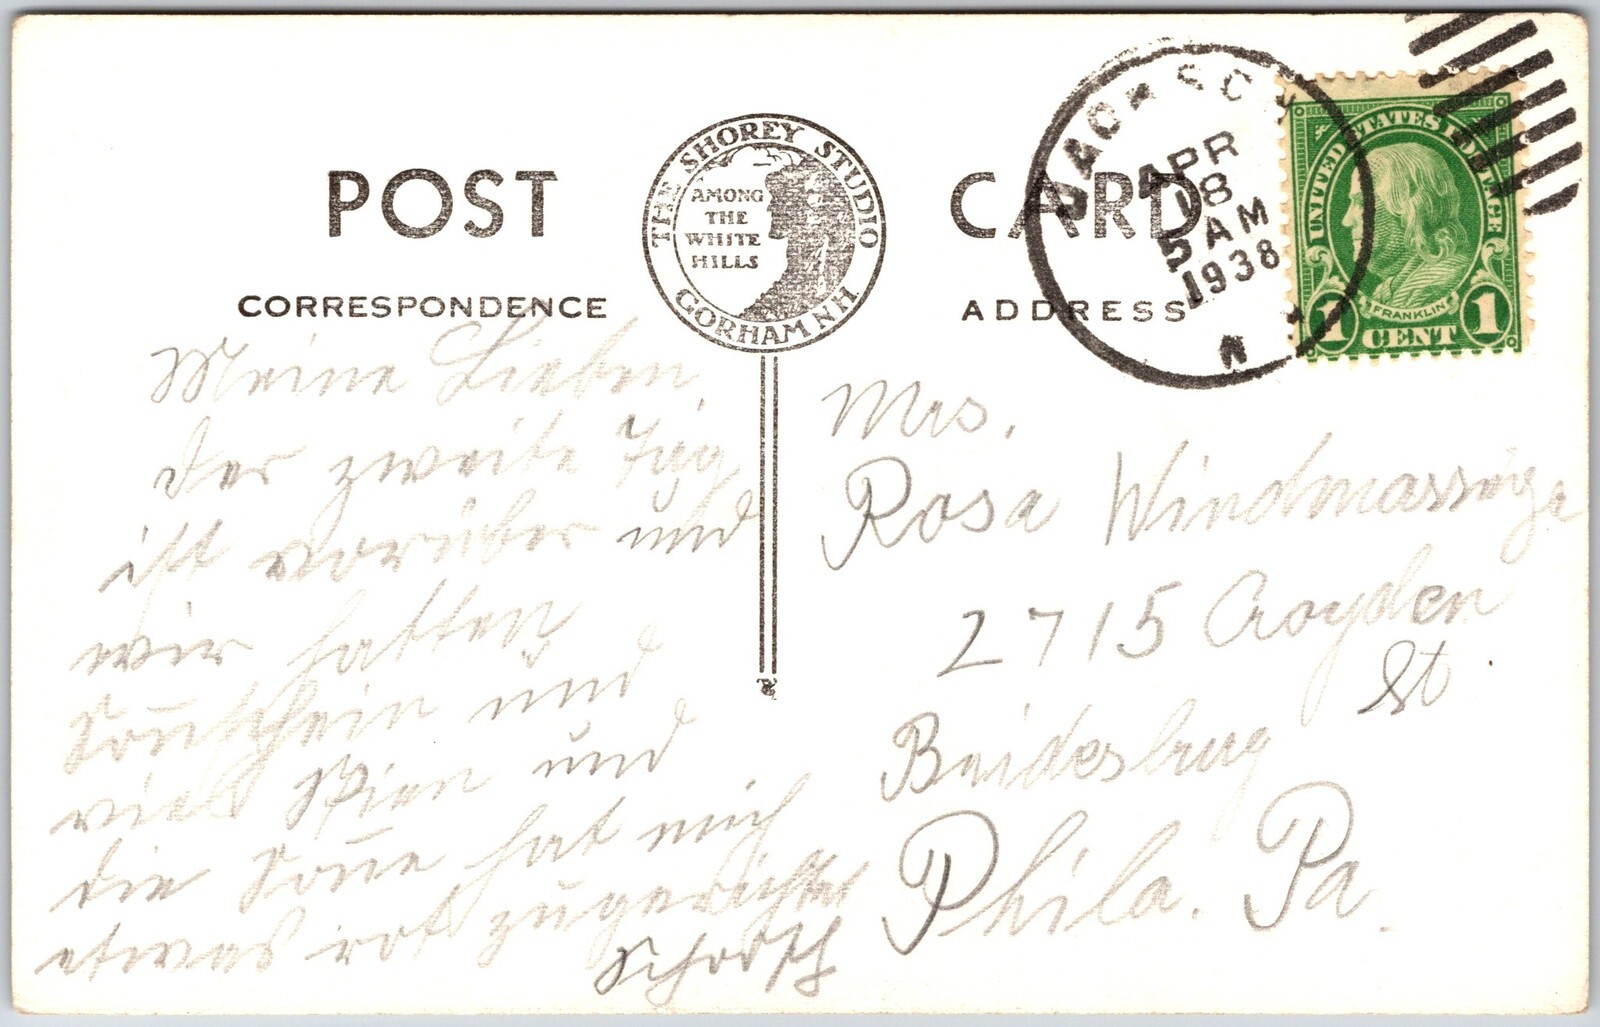 POST CARD
THE SHOREY STUDIO
GORHAM NH
AMONG
THE
WHITE
HILLS
CORRESPONDENCE
ADDRESS
JACKSON
APR
18
5 AM
1938
N
UNITED STATES POSTAGE
FRANKLIN
1 CENT 1
Meine Lieben,
der zweite Tag
ist vorüber und
wir hatten
Sonnschein und
viel Skien und
die Sonne hat mich
etwas rot zugerichtet
Schorsch
Mrs.
Rosa Windmassinger
2715 Croyden
St
Bridesburg
Phila. Pa.